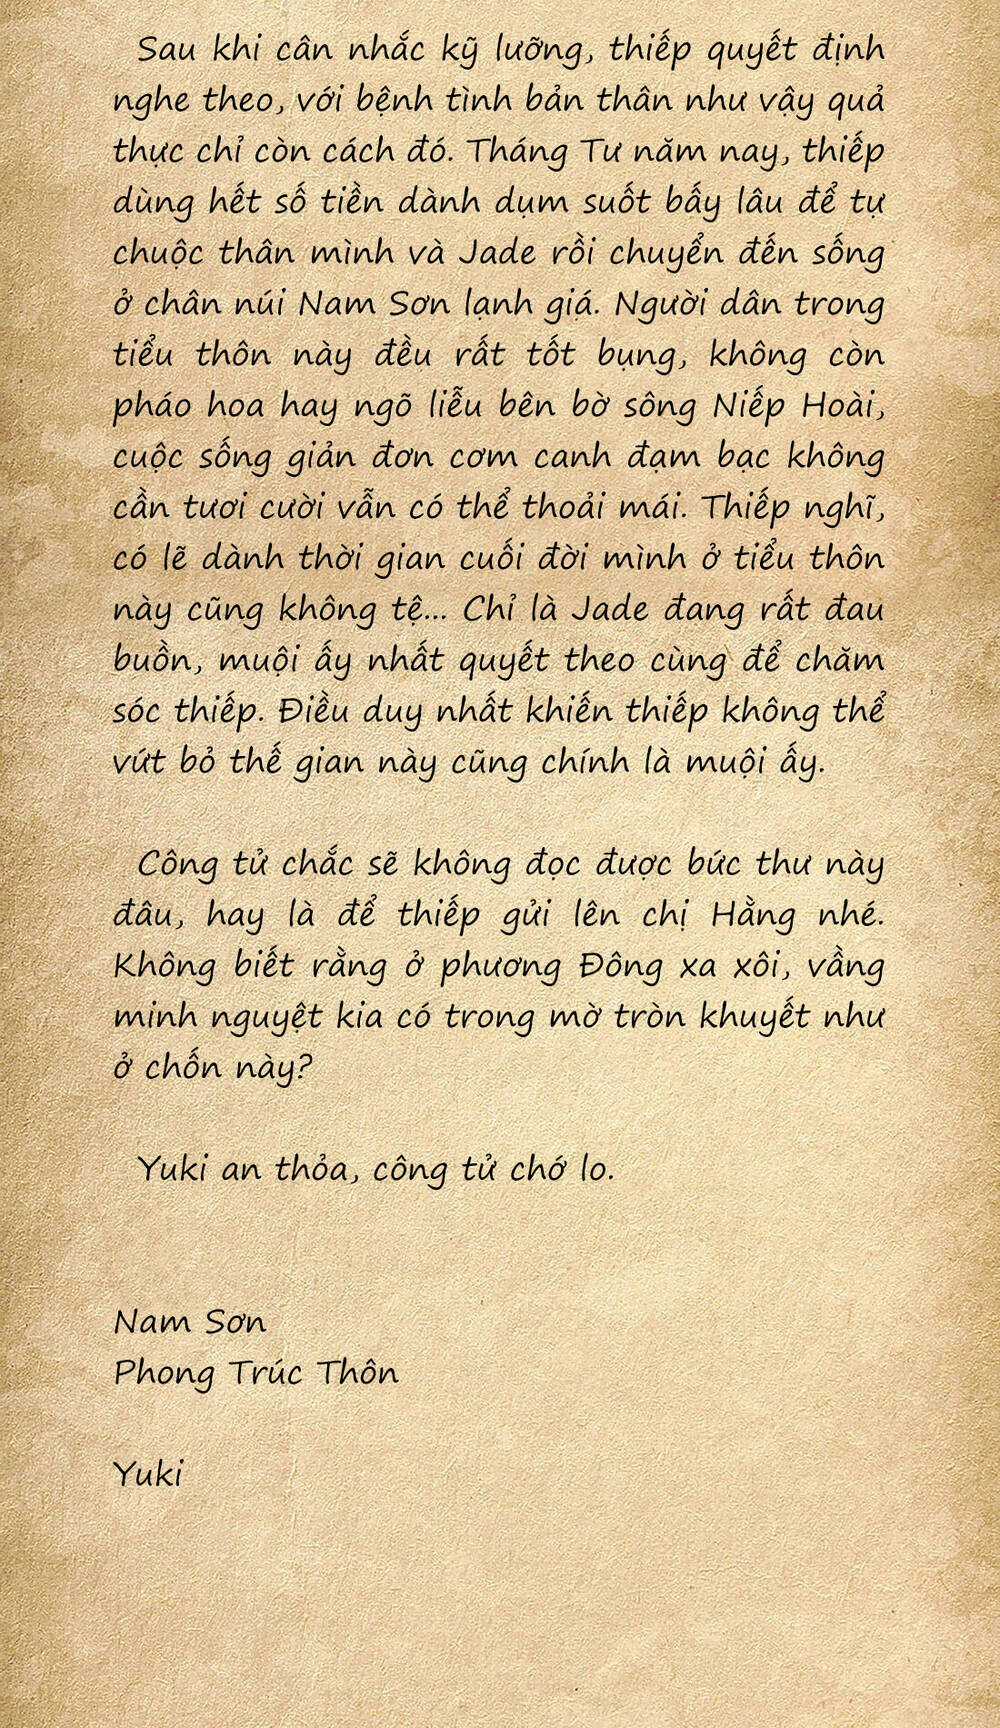 Sau khi cân nhắc kỹ lưỡng, thiếp quyết định
nghe theo, với bệnh tình bản thân như vậy quả
thực chỉ còn cách đó. Tháng Tư năm nay, thiếp
dùng hết số tiền dành dụm suốt bấy lâu để tự
chuộc thân mình và Jade rồi chuyển đến sống
ở chân núi Nam Sơn lạnh giá. Người dân trong
tiểu thôn này đều rất tốt bụng, không còn
pháo hoa hay ngõ liễu bên bờ sông Niếp Hoài,
cuộc sống giản đơn cơm canh đạm bạc không
cần tươi cười vẫn có thể thoải mái. Thiếp nghĩ,
có lẽ dành thời gian cuối đời mình ở tiểu thôn
này cũng không tệ... Chỉ là Jade đang rất đau
buồn, muội ấy nhất quyết theo cùng để chăm
sóc thiếp. Điều duy nhất khiến thiếp không thể
vứt bỏ thế gian này cũng chính là muội ấy.
Công tử chắc sẽ không đọc được bức thư này
đâu, hay là để thiếp gửi lên chị Hằng nhé.
Không biết rằng ở phương Đông xa xôi, vầng
minh nguyệt kia có trong mờ tròn khuyết như
ở chốn này?
Yuki an thỏa, công tử chớ lo.
Nam Sơn
Phong Trúc Thôn
Yuki